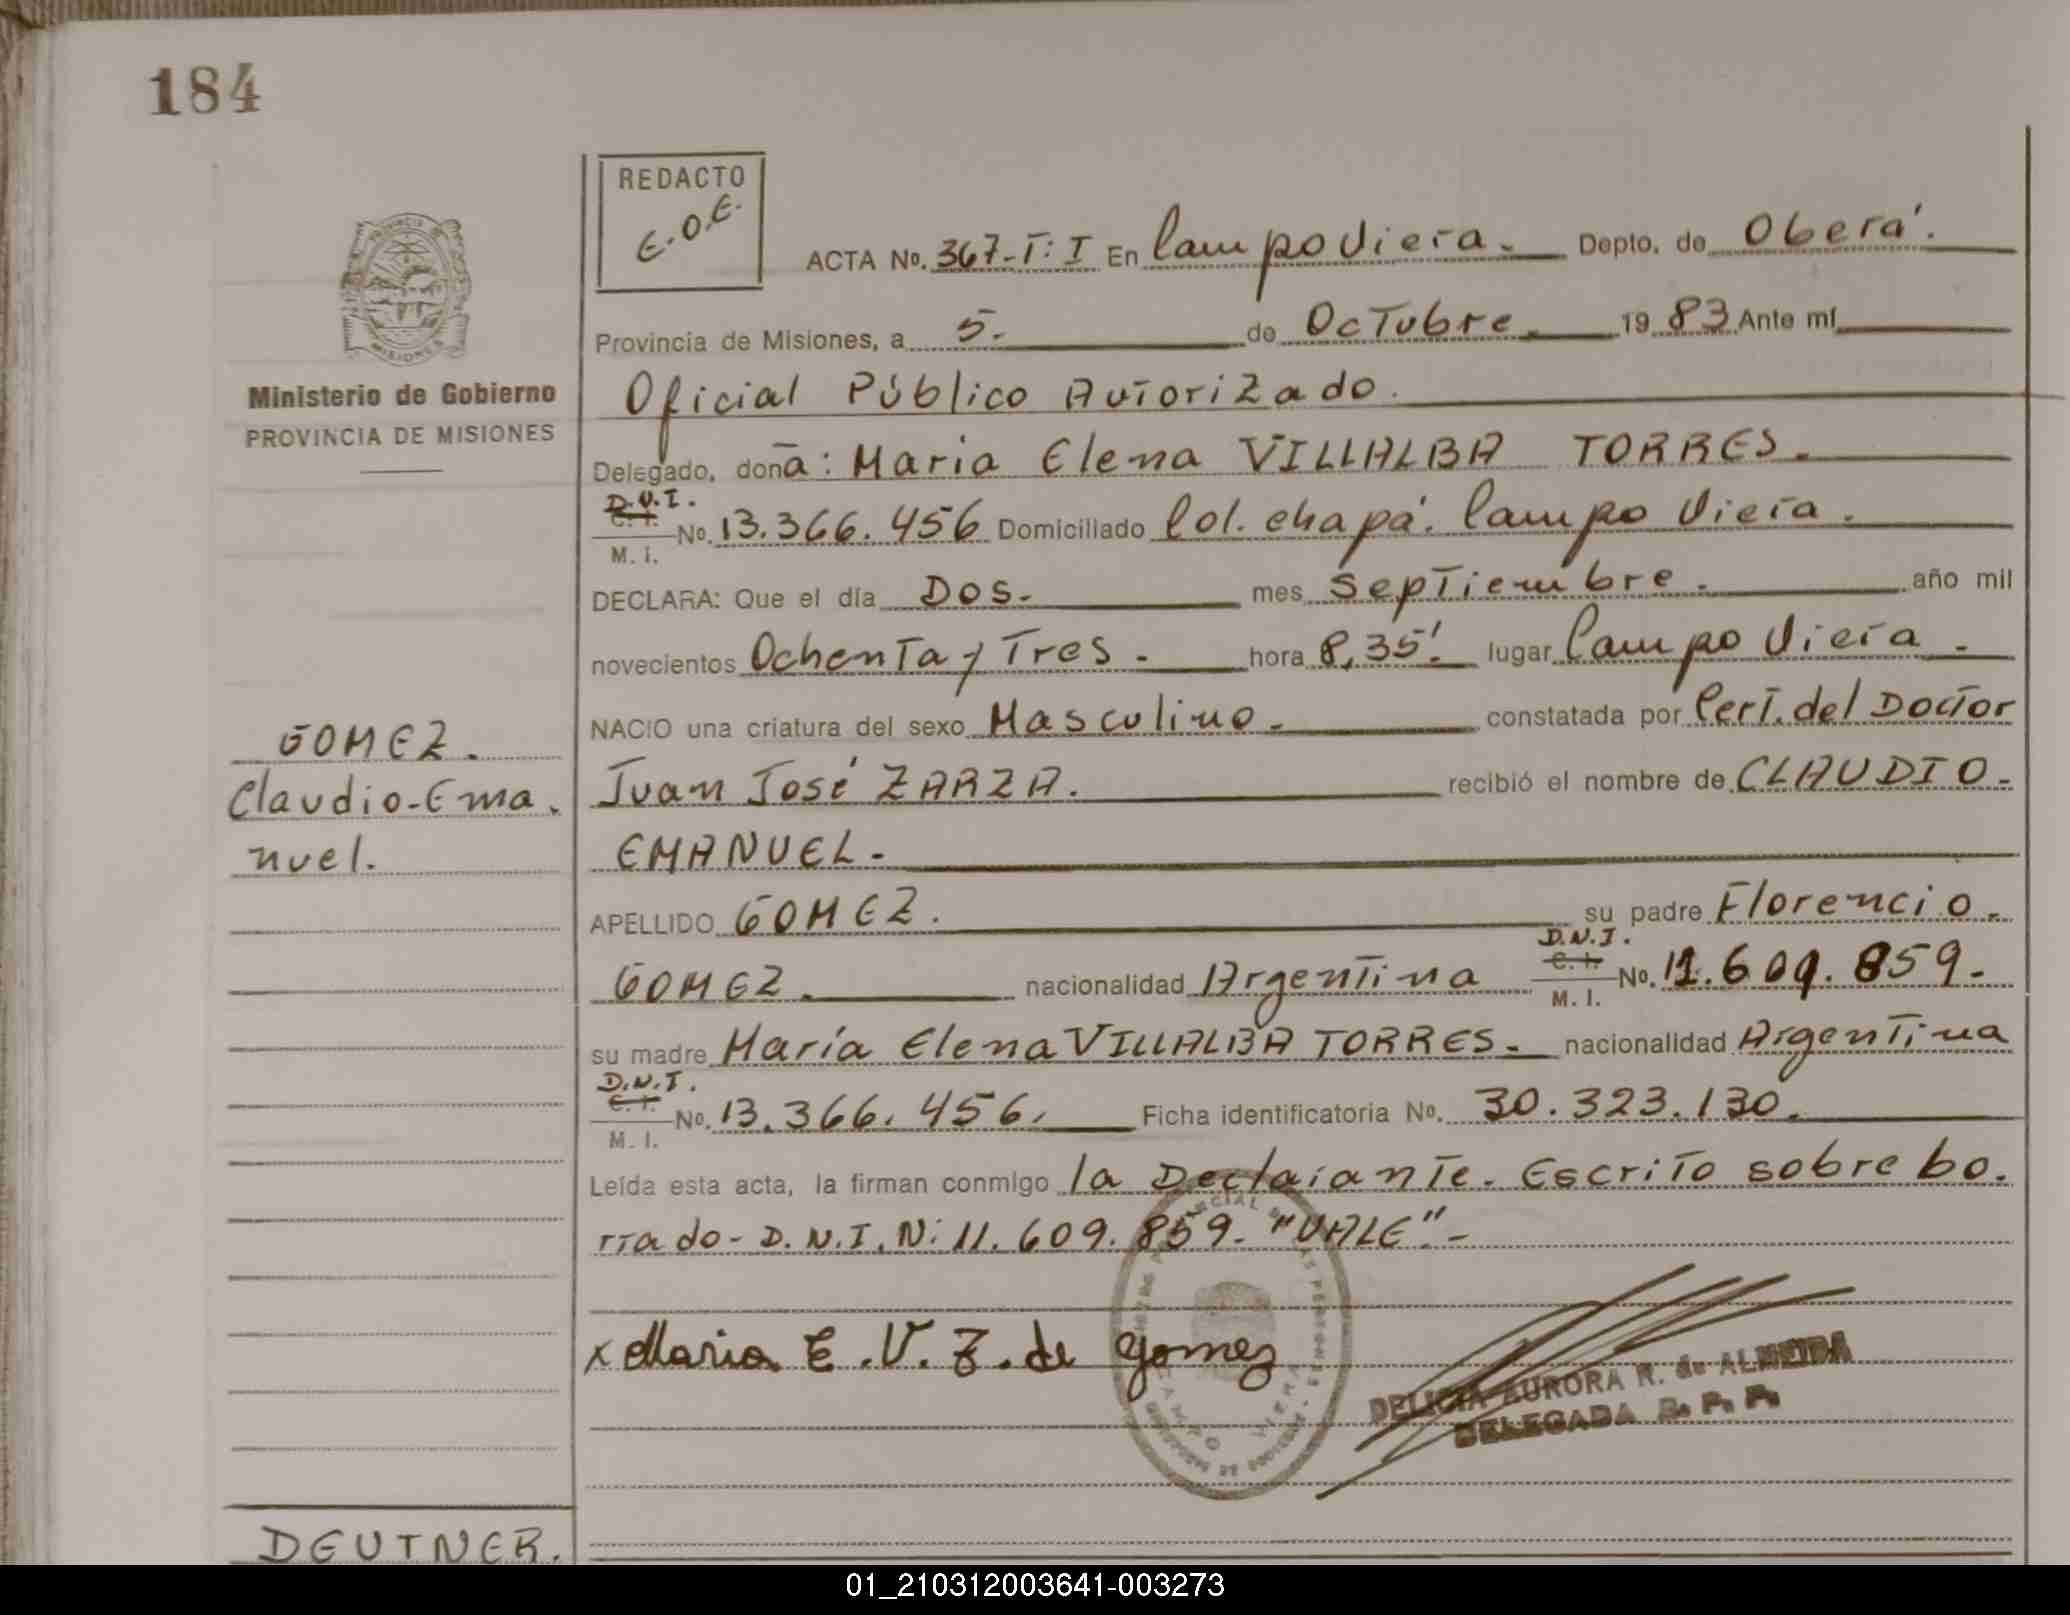 184
REDACTO
E.O.E.
ACTA No. 367-T: I En Campo Viera. Depto. de Oberá.
Provincia de Misiones, a 5. de Octubre. 1983 Ante mí
Oficial Público Autorizado.
Delegado, doña: Maria Elena VILLALBA TORRES.
D.N.I.
C. I.
M. I.
No. 13.366.456 Domiciliado Col. chapá. Campo Viera.
DECLARA: Que el día Dos. mes Septiembre. año mil
novecientos Ochenta y Tres. hora 8,35'. lugar Campo Viera.
NACIO una criatura del sexo Masculino. constatada por Cert. del Doctor
Juan José ZARZA. recibió el nombre de CLAUDIO-
EMANUEL.
APELLIDO GOMEZ. su padre Florencio.
GOMEZ. nacionalidad Argentina D.N.I. C. I. M. I. No. 11.609.859.
su madre María Elena VILLALBA TORRES. nacionalidad Argentina
D.N.I.
C. I.
M. I.
No. 13.366.456. Ficha identificatoria No. 30.323.130.
Leída esta acta, la firman conmigo la Declarante. Escrito sobre bo.
rrado- D.N.I. N: 11.609.859. "VALE".-
x Maria E. V. T. de Gomez
DELICIA AURORA R. de ALMEIDA
DELEGADA R. P. P.
CAMPO VIERA
PROVINCIA DE MISIONES
Ministerio de Gobierno
PROVINCIA DE MISIONES
GOMEZ.
Claudio-Ema.
nuel.
DEUTNER.
01_210312003641-003273